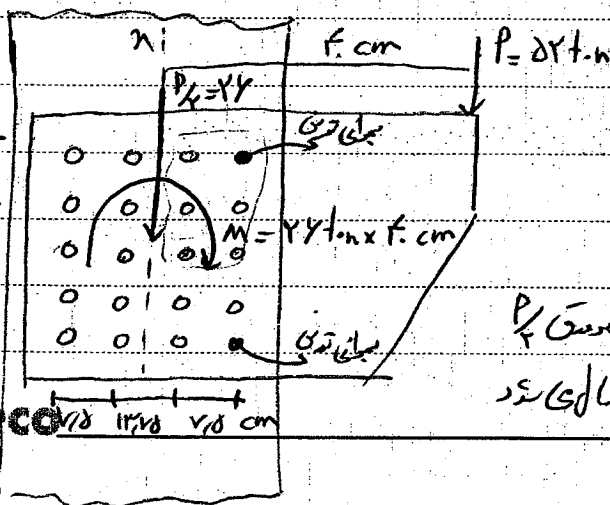 x
۴۰ cm
P = ۵۲ ton
P/۲ = ۲۶
بحرانی ترین
M = ۲۶ ton x ۴۰ cm
بحرانی ترین
P/۲
۷,۵ ۱۳,۷۵ ۷,۵ cm
PCO